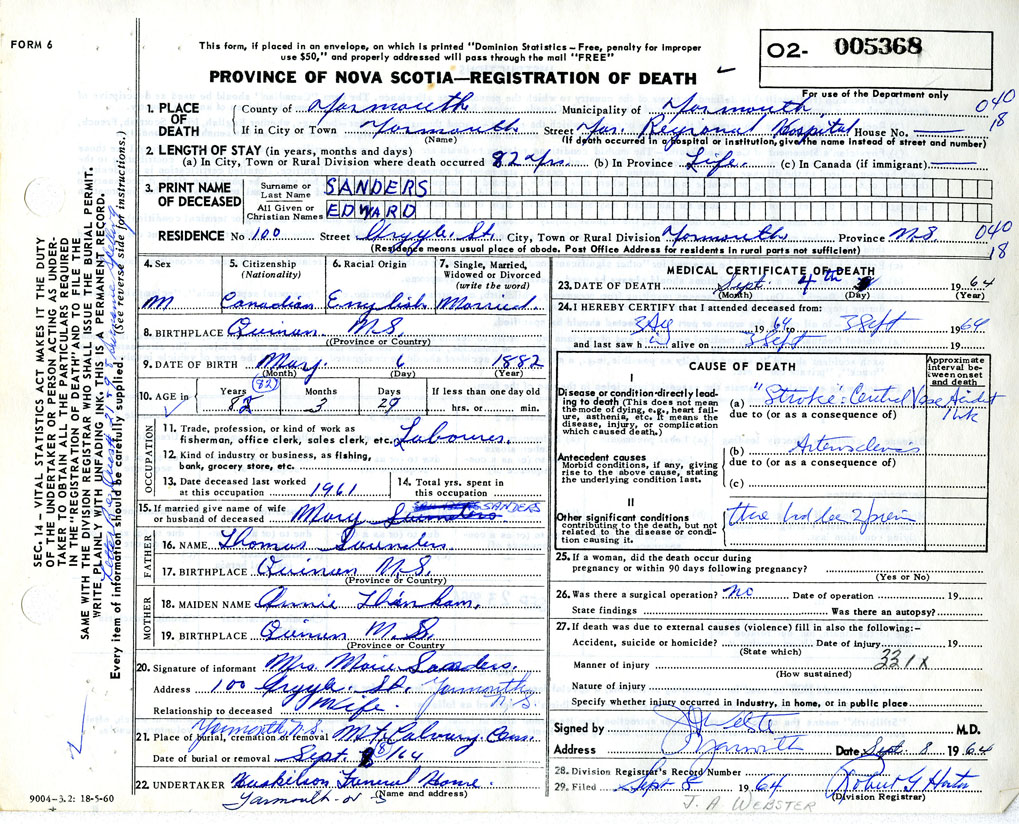 FORM 6
This form, if placed in an envelope, on which is printed "Dominion Statistics – Free, penalty for improper
use $50," and properly addressed will pass through the mail "FREE"
PROVINCE OF NOVA SCOTIA—REGISTRATION OF DEATH
O2- 005368
For use of the Department only
1. PLACE OF DEATH County of Yarmouth Municipality of Yarmouth 040
If in City or Town Yarmouth Street Yar. Regional Hospital House No. 18
(Name) (If death occurred in a hospital or institution, give the name instead of street and number)
2. LENGTH OF STAY (in years, months and days)
(a) In City, Town or Rural Division where death occurred 82 yrs. (b) In Province Life. (c) In Canada (if immigrant)
3. PRINT NAME OF DECEASED Surname or Last Name SANDERS
All Given or Christian Names EDWARD
RESIDENCE No. 100 Street Argyle St. City, Town or Rural Division Yarmouth Province N.S. 040
(Residence means usual place of abode. Post Office Address for residents in rural parts not sufficient) 18
4. Sex 5. Citizenship (Nationality) 6. Racial Origin 7. Single, Married, Widowed or Divorced (write the word)
M Canadian English Married
8. BIRTHPLACE Quinan N.S.
(Province or Country)
9. DATE OF BIRTH May 6 1882
(Month) (Day) (Year)
10. AGE in Years Months Days If less than one day old
(82) 82 3 29 hrs. or min.
OCCUPATION
11. Trade, profession, or kind of work as
fisherman, office clerk, sales clerk, etc. Labourer.
12. Kind of industry or business, as fishing,
bank, grocery store, etc.
13. Date deceased last worked at this occupation 1961 14. Total yrs. spent in this occupation
15. If married give name of wife or husband of deceased Mary Saunders SANDERS
FATHER
16. NAME Thomas Saunders
17. BIRTHPLACE Quinan N.S.
(Province or Country)
MOTHER
18. MAIDEN NAME Annie
19. BIRTHPLACE Quinan N.S.
(Province or Country)
20. Signature of informant Mrs Marie Sanders.
Address 100 Argyle St. Yarmouth N.S.
Relationship to deceased Wife.
Yarmouth, N.S.
21. Place of burial, cremation or removal Mt. Calvary Cem.
Date of burial or removal Sept. 8 /64
22. UNDERTAKER Huskilson Funeral Home.
Yarmouth N S (Name and address)
9004–3.2: 18-5-60
MEDICAL CERTIFICATE OF DEATH
23. DATE OF DEATH Sept. 4th 1964
(Month) (Day) (Year)
24. I HEREBY CERTIFY that I attended deceased from:
3 Aug 1964 to 3 Sept 1964
and last saw h im alive on 3 Sept 19
CAUSE OF DEATH
Approximate interval between onset and death
I
Disease or condition directly leading to death (This does not mean the mode of dying, e.g., heart failure, asthenia, etc. It means the disease, injury, or complication which caused death.)
(a) "Stroke"
due to (or as a consequence of) 1 wk
Antecedent causes
Morbid conditions, if any, giving rise to the above cause, stating the underlying condition last.
(b)
due to (or as a consequence of)
(c)
II
Other significant conditions
contributing to the death, but not related to the disease or condition causing it.
25. If a woman, did the death occur during
pregnancy or within 90 days following pregnancy?
(Yes or No)
26. Was there a surgical operation? No Date of operation 19
State findings Was there an autopsy?
27. If death was due to external causes (violence) fill in also the following:–
Accident, suicide or homicide? Date of injury 19
(State which)
Manner of injury 331X
(How sustained)
Nature of injury
Specify whether injury occurred in industry, in home, or in public place
Signed by M.D.
Address Yarmouth Date Sept. 8 1964
28. Division Registrar's Record Number
29. Filed Sept 8 1964 Robert G
J. A WEBSTER (Division Registrar)
SEC. 14 – VITAL STATISTICS ACT MAKES IT THE DUTY
OF THE UNDERTAKER OR PERSON ACTING AS UNDER-
TAKER TO OBTAIN ALL THE PARTICULARS REQUIRED
IN THE "REGISTRATION OF DEATH" AND TO FILE THE
SAME WITH THE DIVISION REGISTRAR WHO SHALL ISSUE THE BURIAL PERMIT.
WRITE PLAINLY WITH UNFADING INK. THIS IS A PERMANENT RECORD.
Every item of information should be carefully supplied. (See reverse side for instructions.)